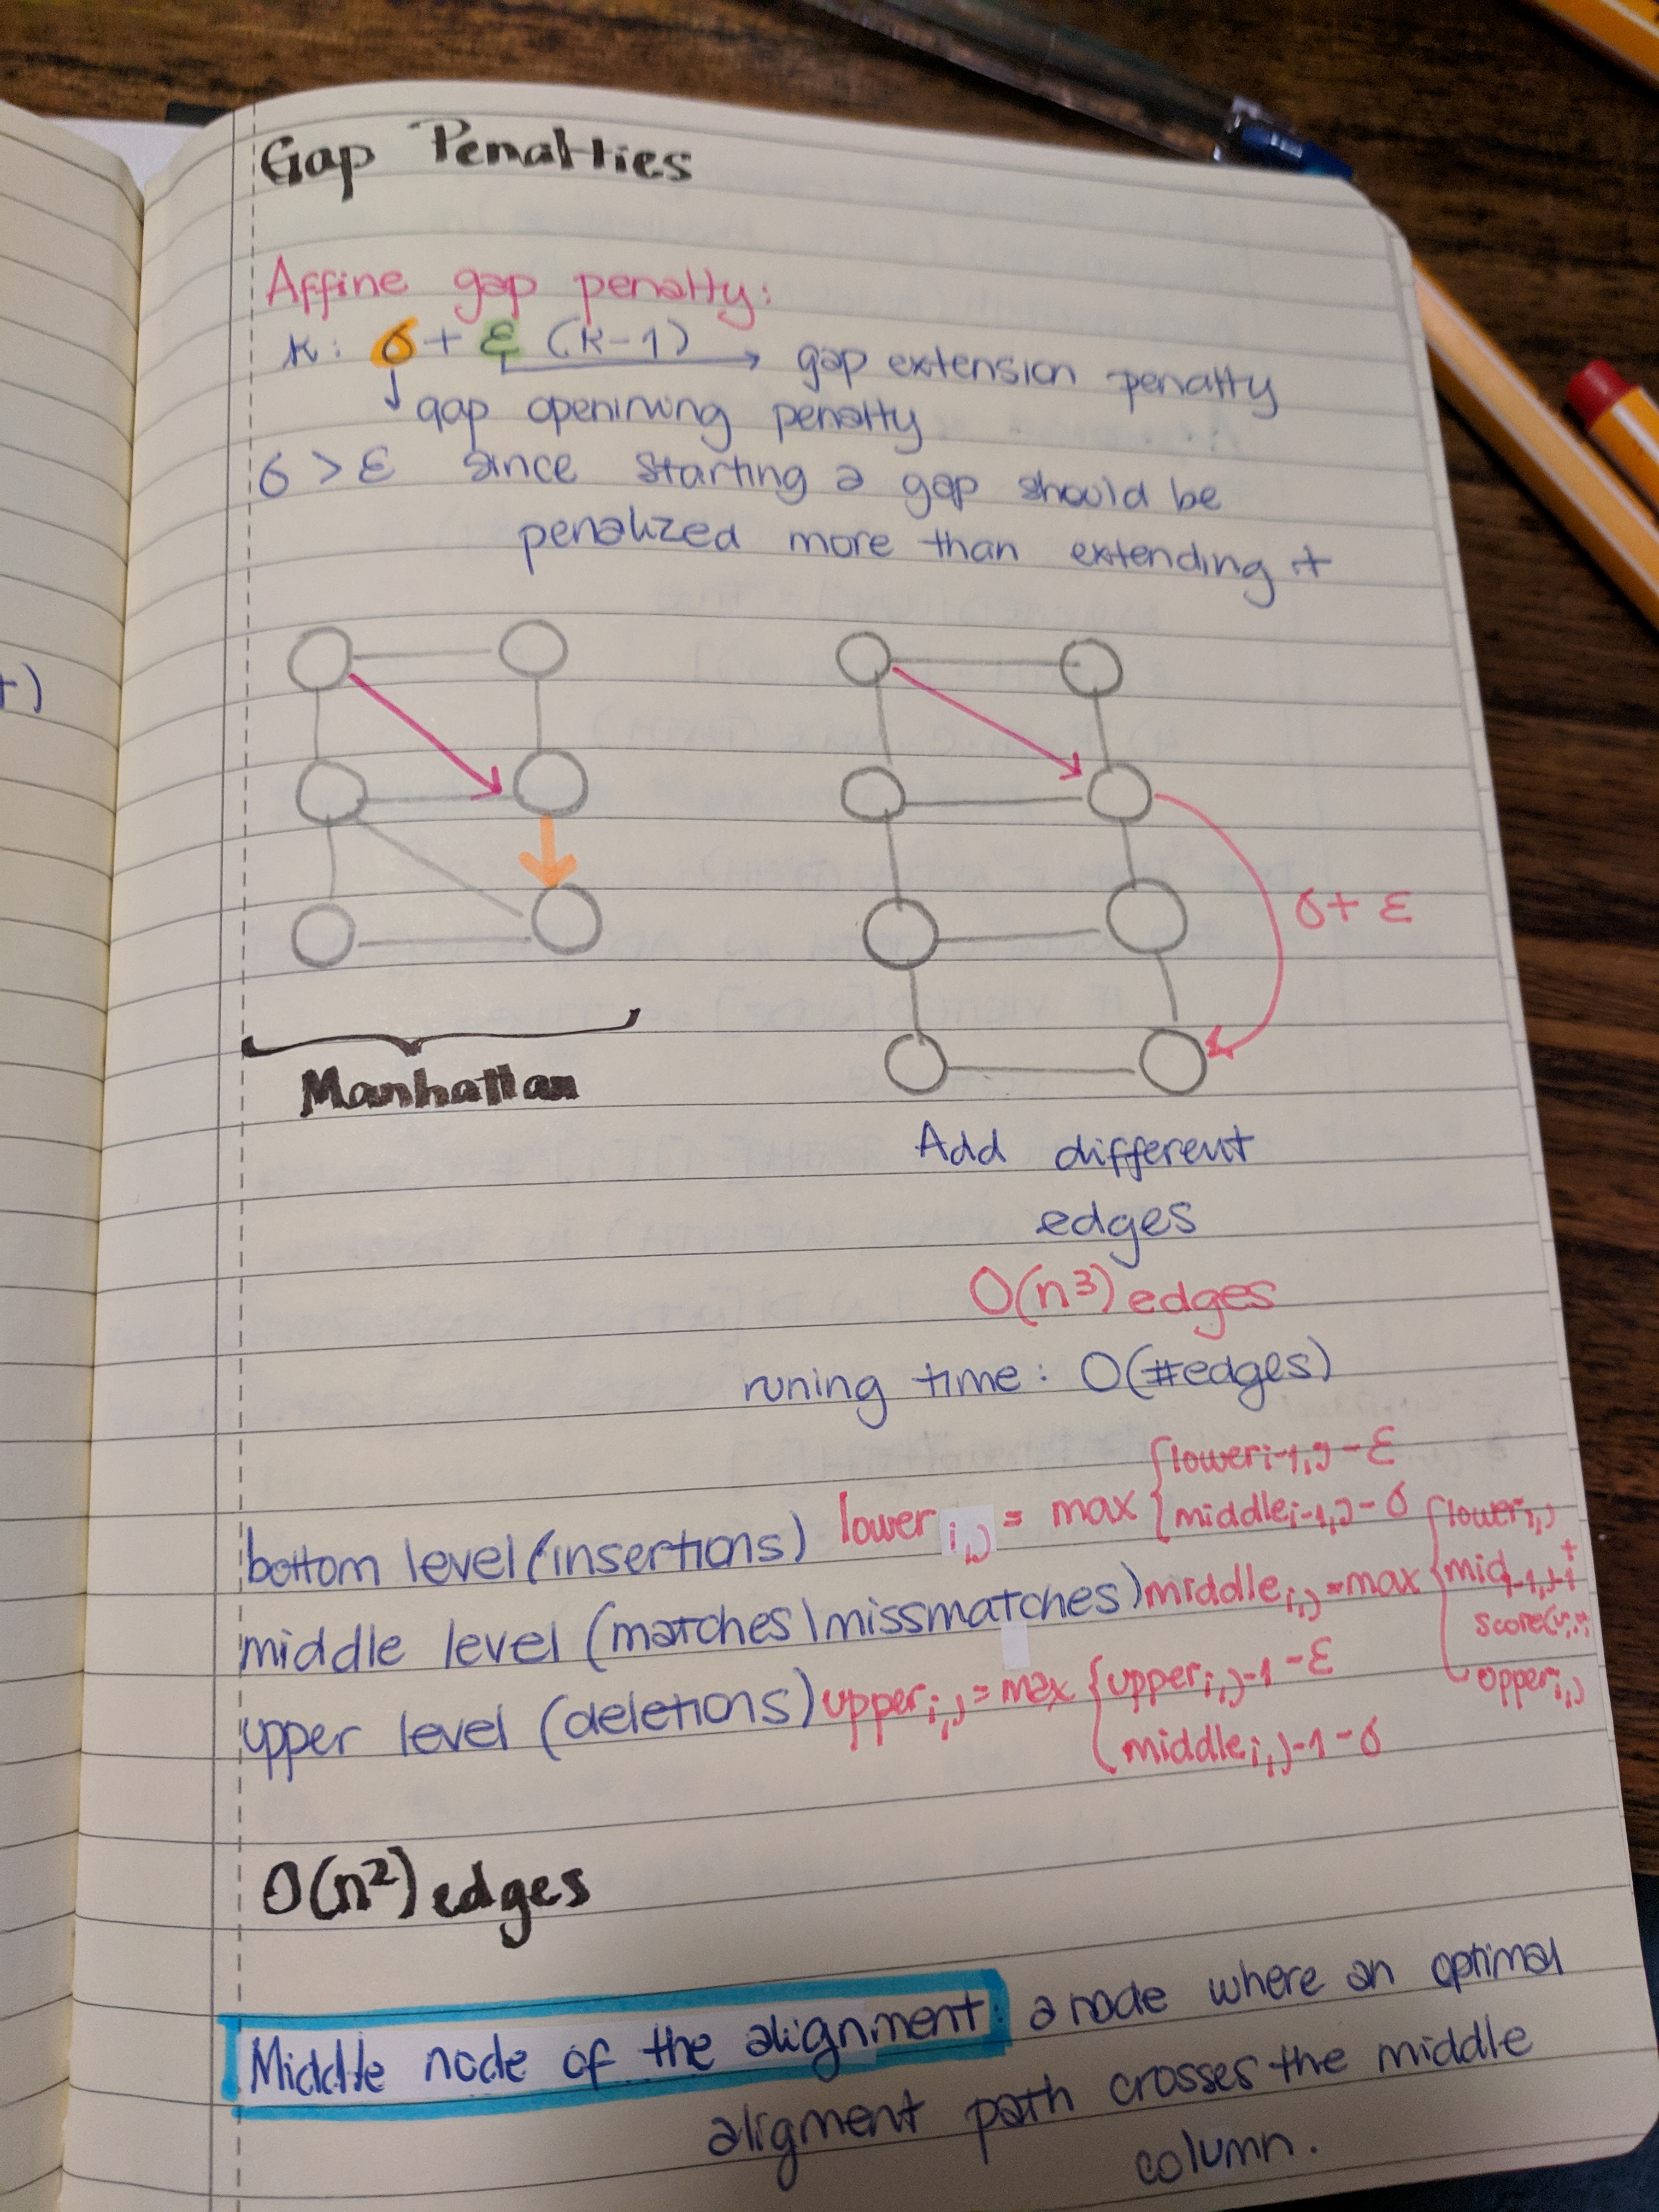 Gap Penalties
Affine gap penalty:
k: σ + ε (k-1) → gap extension penalty
gap openinving penalty
σ > ε since starting a gap should be
penalized more than extending it
σ + ε
Manhattan
Add different
edges
O(n³) edges
runing time: O(#edges)
bottom level (insertions) lower i,j = max { lower i-1,j - ε
middle i-1,j - σ
middle level (matches\missmatches) middle i,j = max { lower i,j
mid i-1,j-1 +
score(
upper i,j
upper level (deletions) upper i,j = max { upper i,j-1 - ε
middle i,j-1 - σ
O(n²) edges
Middle node of the alignment: a node where an optimal
aligment path crosses the middle
column.